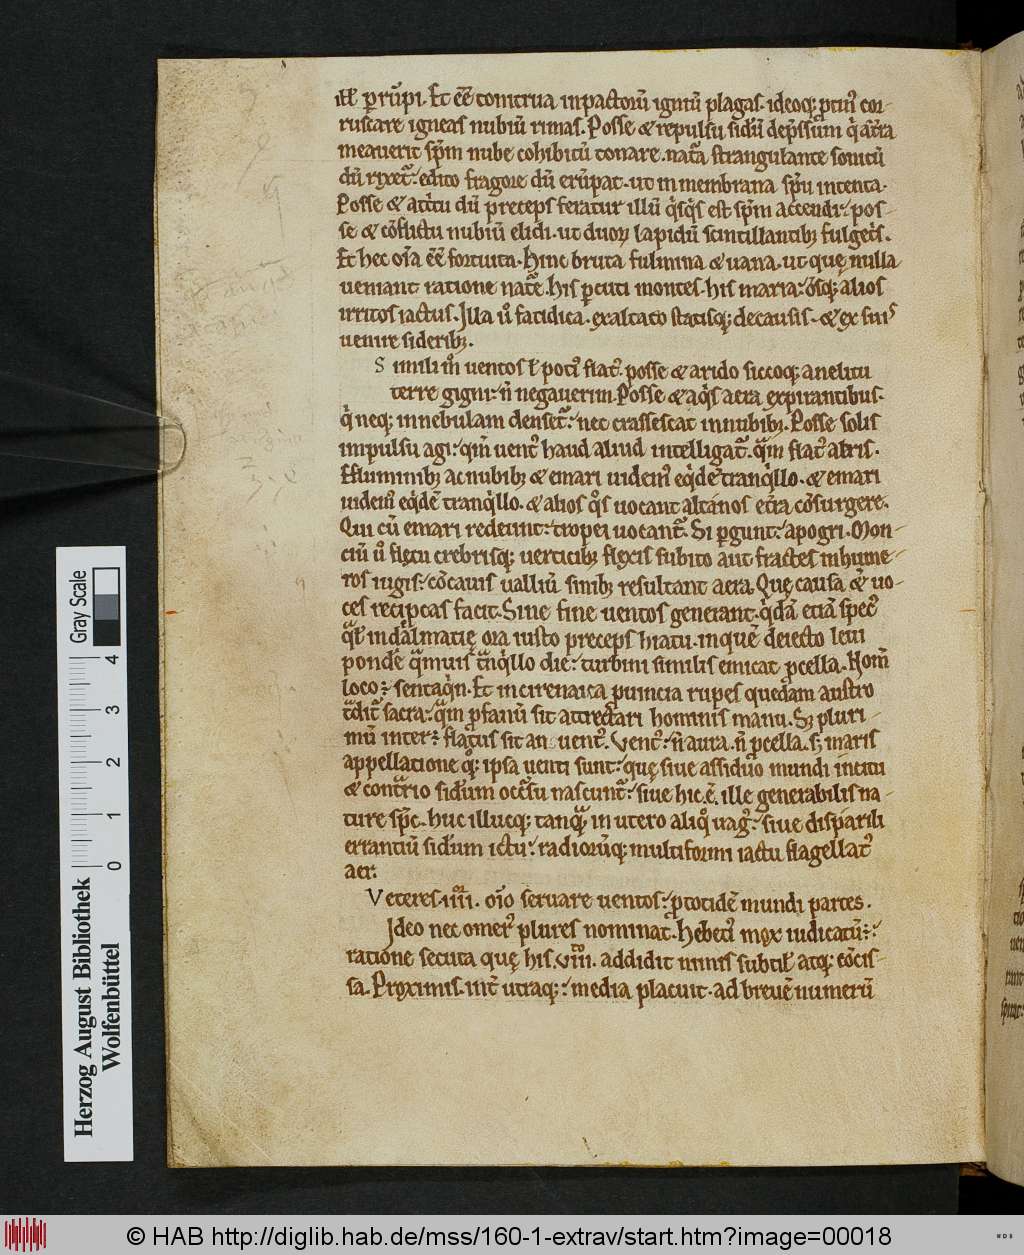 ill̅ ꝑrūpi. Et ēē tonitrua inpactorū igniū plagas. ideoq; ptin᷒ cor-
ruscare igneas nubiū rimas. Posse & repulsu sidū dep̄ssūm q̇ at̄ra
meauerit sp̄m nube cohibitū tonare. nat̄a strangulante sonitū
dū rixet᷒. edito fragore dū erūpat. ut in membrana sp̄u intenta.
Posse & att̄tu dū preceps feratur illū q̇sq̇s est sp̄m accendi. pos-
se & cōflictu nubiū elidi. ut duoꝝ lapidū scintillantibꝫ fulget̄s.
Et hec oīa ēē fortuita. Hinc bruta fulmina & uana. ut quę nulla
ueniant ratione nat̄e. his ꝑcuti montes. his maria. ōsq; alios
irritos iactus. Illa u̇ fatidica. exaltato statisq; decausis. & ex suis
uenire sideribꝫ.
Simili m̊ uentos l̄ poti᷒ flat᷒. posse & arido siccoq; anelitu
terre gigni. n̄ negauerim. Posse & aq̇s aera expirantibus.
q̇ neq; innebulam denset᷒. nec crassescat innubibꝫ. Posse solis
impulsu agi. qm̄ uent᷒ haud aliud intelligat᷒. qͣm flat᷒ aeris.
Efluminibꝫ ac nubibꝫ & emari uidem᷒ eq̇dē tranq̇llo. & emari
uidem᷒ eq̇dē tranq̇llo. & alios q̊s uocant altanos et̄ra cōsurgere.
Qui cū emari redeunt. tropei uocant᷒. Si ꝑgunt. apogri. Mon-
ciū u̇ flexu crebrisq; uerticibꝫ flexis subito aut fractes inhume-
ros iugis. cōcauis ualliū sinibꝫ resultant aera. Quę causa & uo-
ces recip̄cas facit. Sine fine uentos generant. q̇dā etiā spec᷒
qͣl̄ in dalmatię ora uasto preceps hiatu. inquē deiecto leui
ponde qͣmuis tͣnq̇llo die. turbini similis emicat ꝓcella. Nom̄
loco. sentaq̇n. Et incirenaica ꝓuincia rupes quedam austro
tͣdit᷒ sacra. qͣm ꝓfanū sit attrectari hominis manu. Sꝫ pluri-
mū inter. flatus sit an uent᷒. Vent᷒. n̄ aura. n̄ ꝓcella. sꝫ maris
appellatione q̊q; ipsa uenti sunt. quę siue assiduo mundi incitu
& contͣrio sidum occ̄su nascunt᷒. siue hic. ē. ille generabilis na-
ture sp̄c. huc illucq; tanqͣm in utero aliq̊ uag᷒. siue dispārili
errantiū sidum ictu. radiorūq; multiformi iactu flagellat᷒
aer.
Veteres. iiii. oīo seruare uentos. ꝓtotidē mundi partes.
Ideo nec omer᷒ plures nominat. Hebeti᷒ mox iudicatū.
ratione secuta quę his. viii. addidit nimis subtil̄ atq; cōcis-
sa. Proximis. int̄ utraq;. media placuit. ad breuē numerū
Gray Scale
0 1 2 3 4
Herzog August Bibliothek
Wolfenbüttel
© HAB http://diglib.hab.de/mss/160-1-extrav/start.htm?image=00018